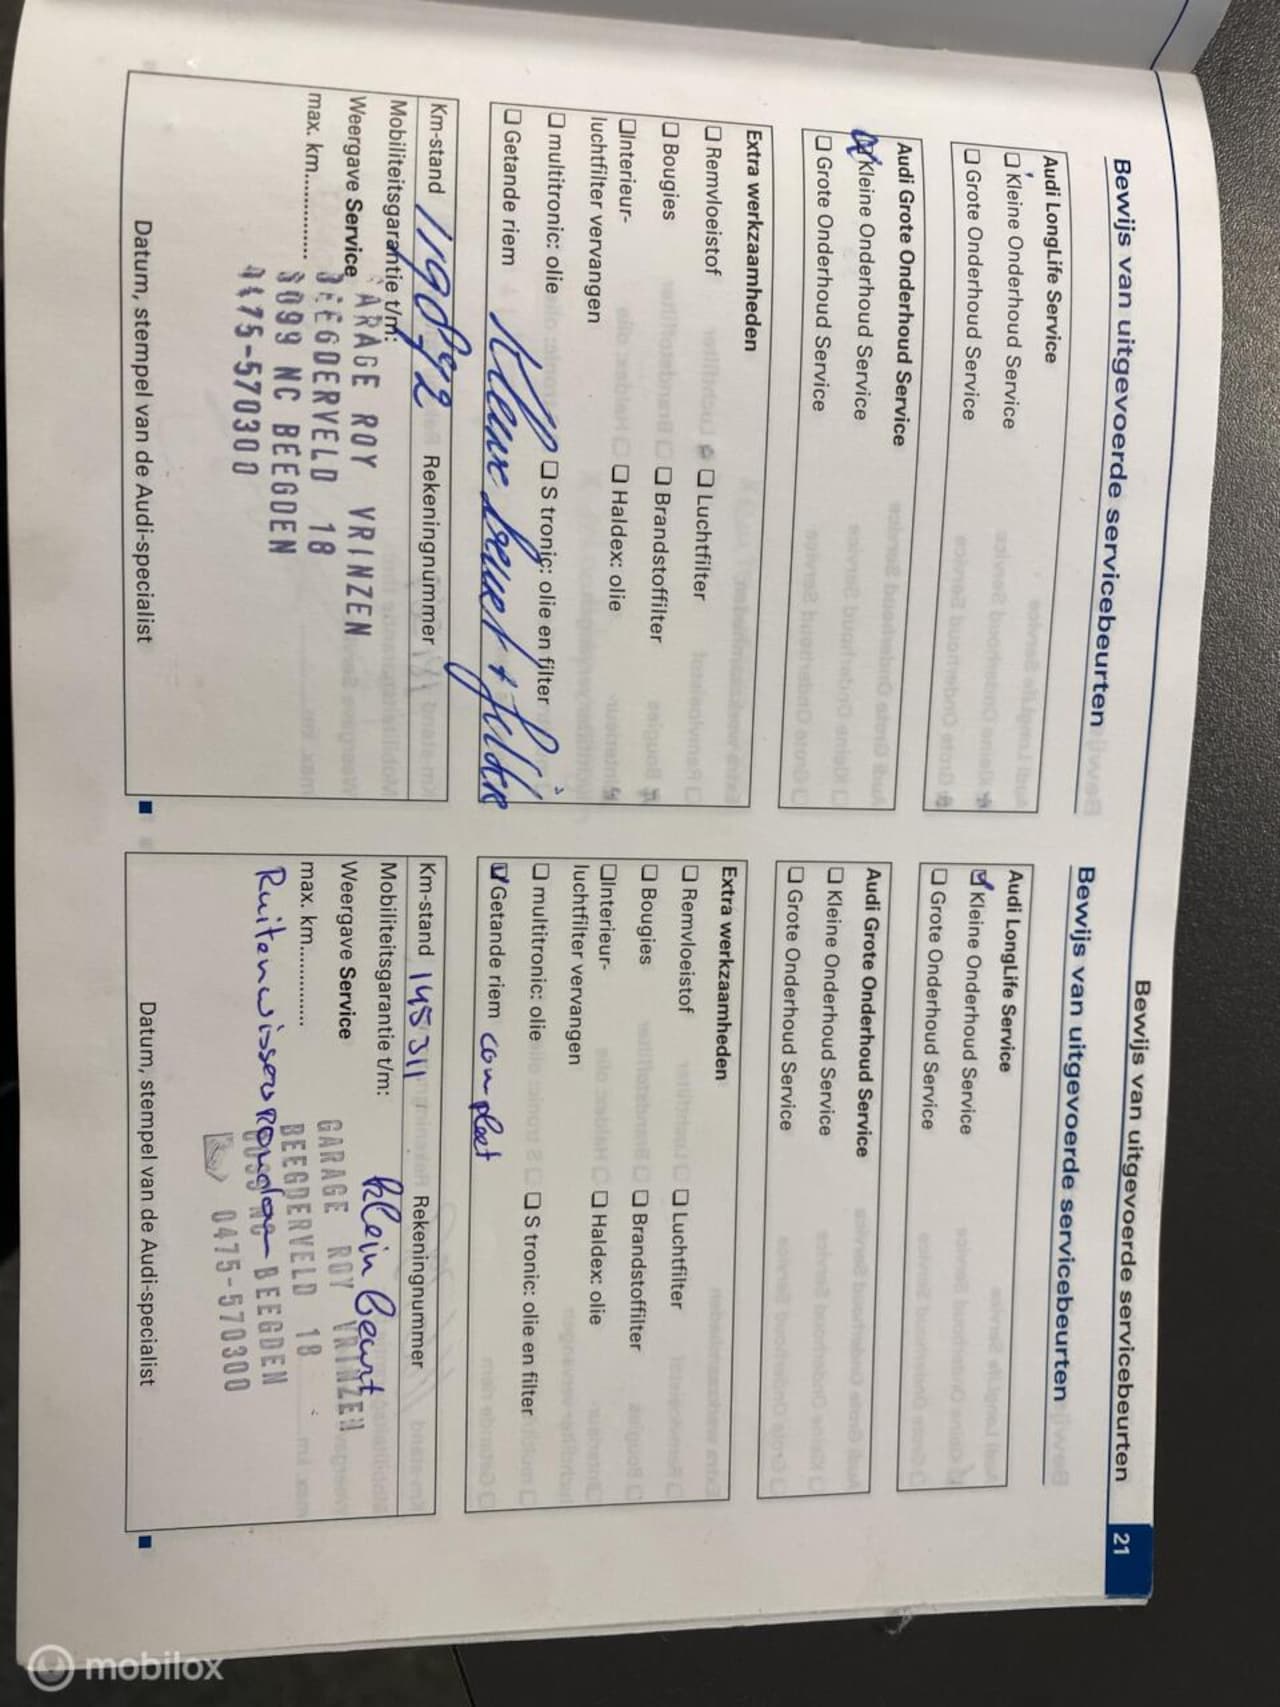 Bewijs van uitgevoerde servicebeurten
21
Bewijs van uitgevoerde servicebeurten
Audi LongLife Service
Kleine Onderhoud Service
Grote Onderhoud Service
Audi Grote Onderhoud Service
Kleine Onderhoud Service
Grote Onderhoud Service
Extra werkzaamheden
Remvloeistof
Luchtfilter
Bougies
Brandstoffilter
Interieur-
luchtfilter vervangen
Haldex: olie
multitronic: olie
S tronic: olie en filter
Getande riem
Kleine beurt + filter
Km-stand 119892 Rekeningnummer
Mobiliteitsgarantie t/m:
Weergave Service
max. km..............
GARAGE ROY VRINZEN
BEEGDERVELD 18
6099 NC BEEGDEN
0475-570300
Datum, stempel van de Audi-specialist
Bewijs van uitgevoerde servicebeurten
Audi LongLife Service
Kleine Onderhoud Service
Grote Onderhoud Service
Audi Grote Onderhoud Service
Kleine Onderhoud Service
Grote Onderhoud Service
Extra werkzaamheden
Remvloeistof
Luchtfilter
Bougies
Brandstoffilter
Interieur-
luchtfilter vervangen
Haldex: olie
multitronic: olie
S tronic: olie en filter
Getande riem compleet
Km-stand 145311 Rekeningnummer
Mobiliteitsgarantie t/m:
klein beurt
Weergave Service
max. km..............
Ruitenwissers
GARAGE ROY VRINZEN
BEEGDERVELD 18
6099 NC BEEGDEN
0475-570300
Datum, stempel van de Audi-specialist
mobilox